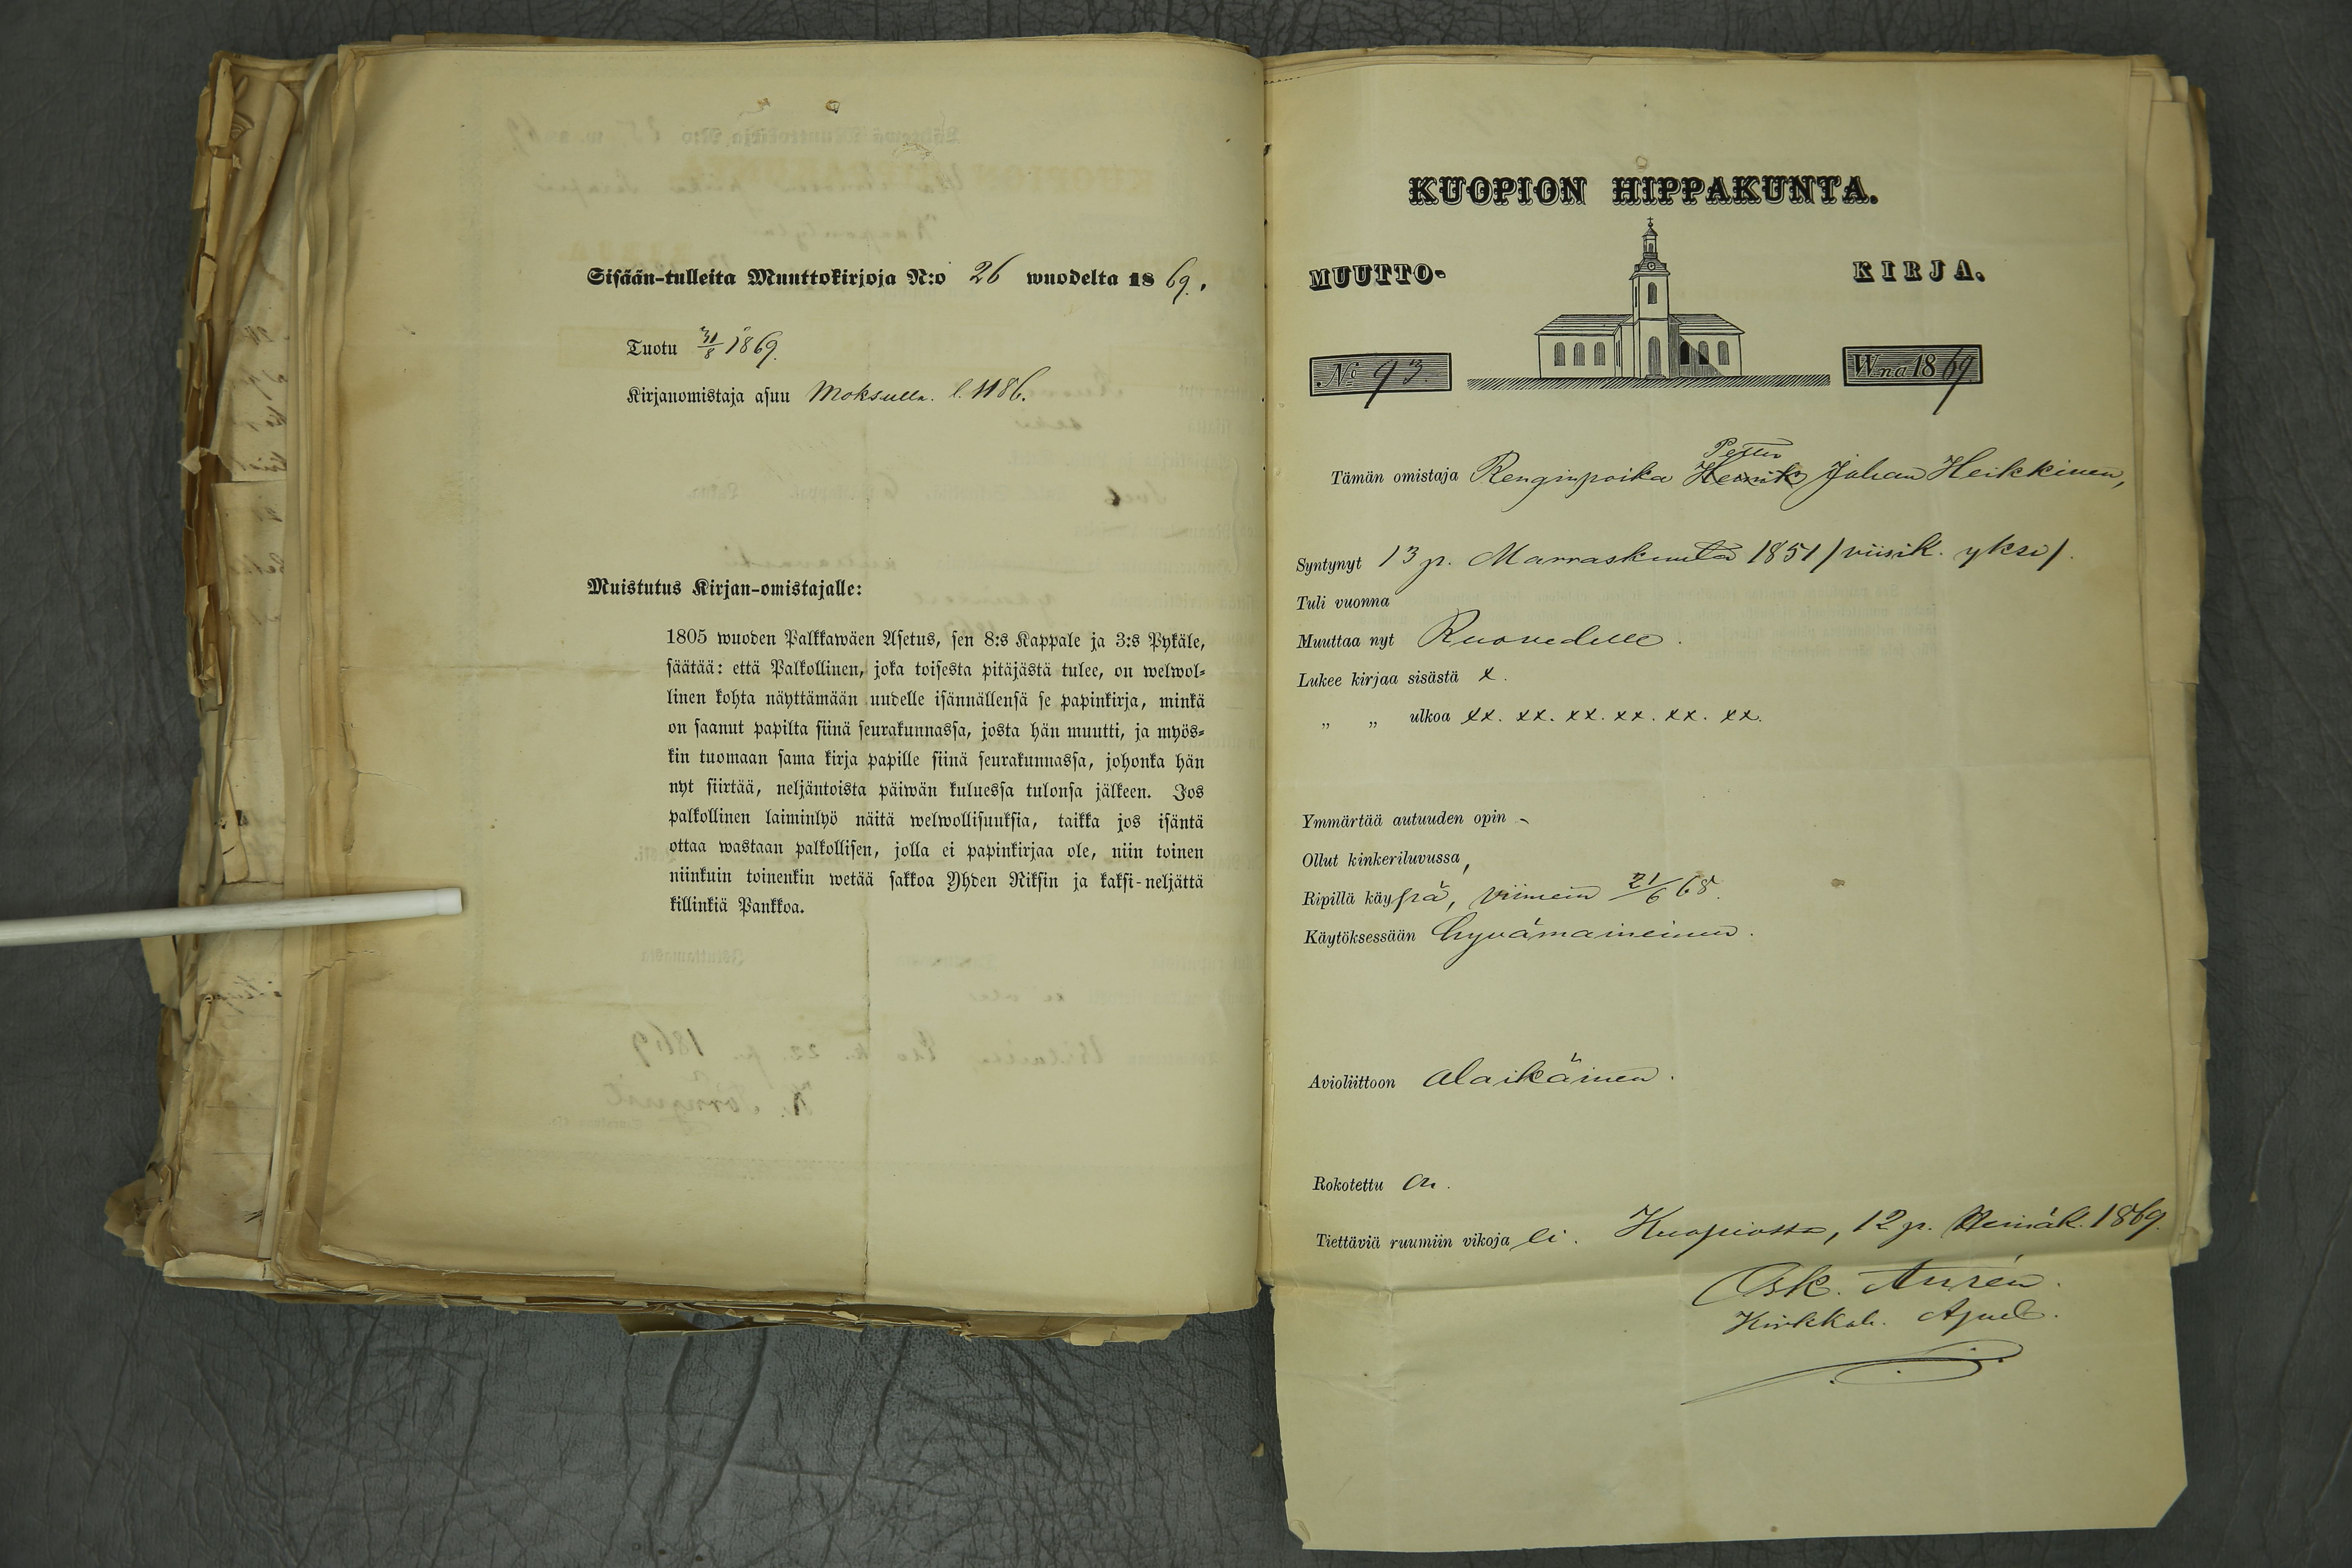 Sisään-tulleita Muuttokirjoja N:o 26 wuodelta 1869.
Tuotu 31/8 1869.
Kirjanomistaja asuu Moksulla. l. 1186.
Muistutus Kirjan-omistajalle:
1805 wuoden Palkkawäen Asetus, sen 8:s Kappale ja 3:s Pykäle,
säätää: että Palkollinen, joka toisesta pitäjästä tulee, on welwol-
linen kohta näyttämään uudelle isännällensä se papinkirja, minkä
on saanut papilta siinä seurakunnassa, josta hän muutti, ja myös-
kin tuomaan sama kirja papille siinä seurakunnassa, johonka hän
nyt siirtää, neljäntoista päiwän kuluessa tulonsa jälkeen. Jos
palkollinen laiminlyö näitä welwollisuuksia, taikka jos isäntä
ottaa wastaan palkollisen, jolla ei papinkirjaa ole, niin toinen
niinkuin toinenkin wetää sakkoa Yhden Riksin ja kaksi-neljättä
killinkiä Pankkoa.
KUOPION HIPPAKUNTA.
MUUTTO- KIRJA.
No 93. Wna 1869
Petter
Tämän omistaja Renginpoika Henrik Johan Heikkinen,
Syntynyt 13 p. Marraskuuta 1851 / viisik. yksi /.
Tuli vuonna
Muuttaa nyt Ruovedelle.
Lukee kirjaa sisästä x.
„ „ ulkoa xx. xx. xx. xx. xx. xx.
Ymmärtää autuuden opin -
Ollut kinkeriluvussa,
Ripillä käypä, viimein 21/6 68.
Käytöksessään hyvämaineinen.
Avioliittoon alaikäinen.
Rokotettu on.
Tiettäviä ruumiin vikoja ei. Kuopiossa, 12 p. Heinäk. 1869.
Osk.
Kirkkoh. Apul.